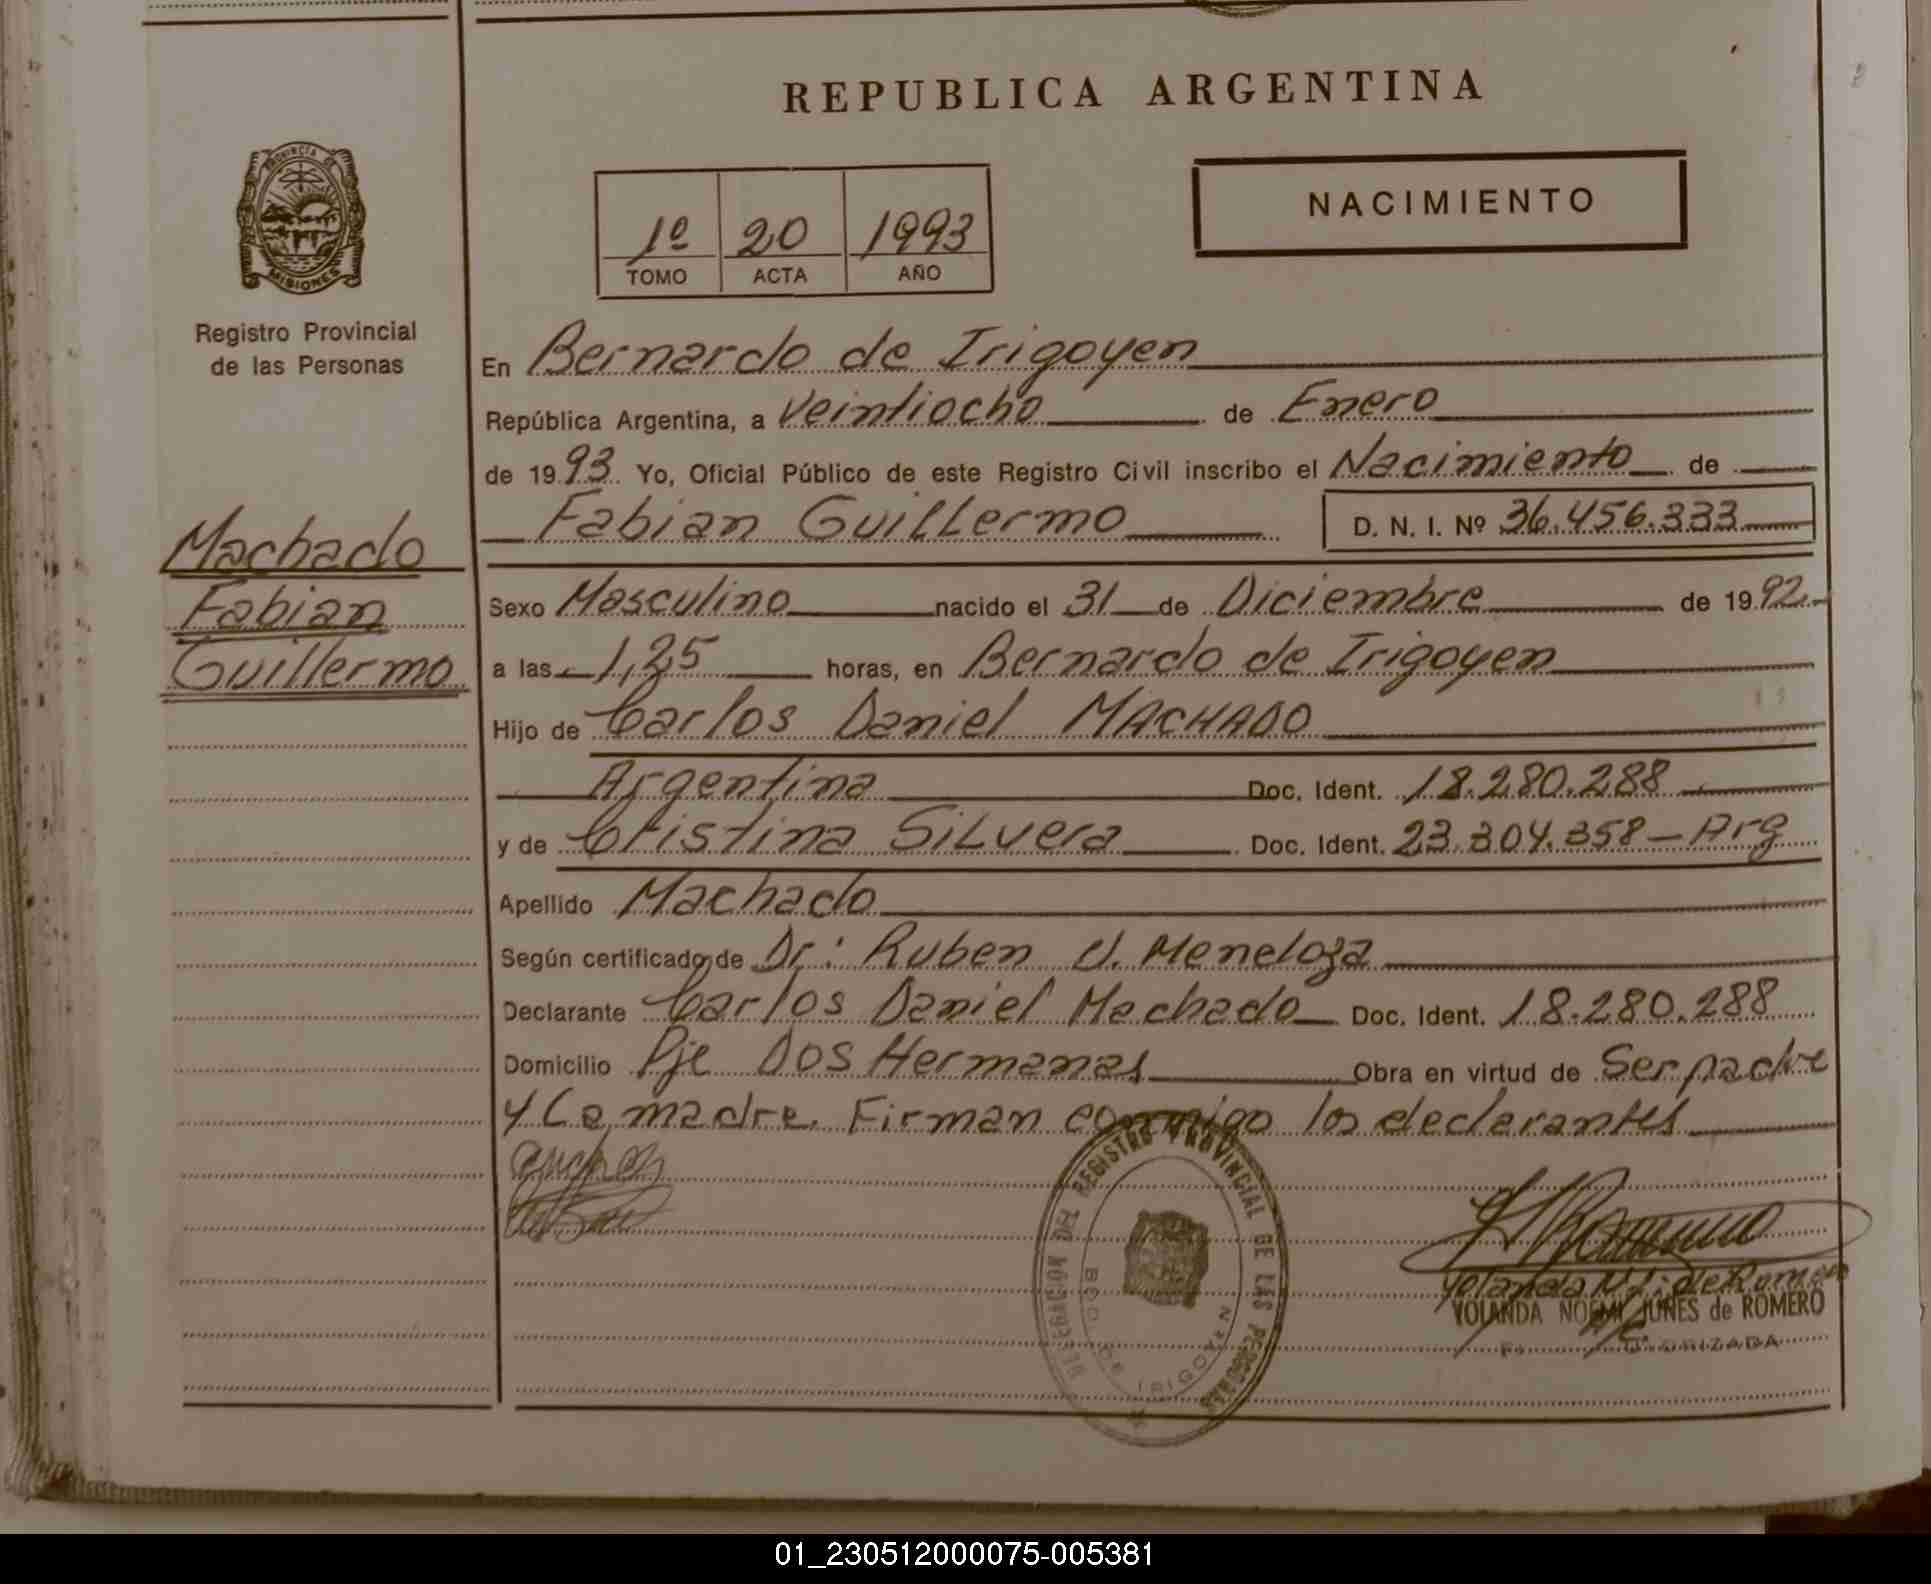 REPUBLICA ARGENTINA
PROVINCIA DE
MISIONES
Registro Provincial
de las Personas
1º 20 1993
TOMO ACTA AÑO
NACIMIENTO
En Bernardo de Irigoyen
República Argentina, a Veintiocho de Enero
de 1993 Yo, Oficial Público de este Registro Civil inscribo el Nacimiento de
Fabian Guillermo D. N. I. Nº 36.456.333
Machado
Fabian
Guillermo
Sexo Masculino nacido el 31 de Diciembre de 1992
a las 1,25 horas, en Bernardo de Irigoyen
Hijo de Carlos Daniel MACHADO
Argentina Doc. Ident. 18.280.288
y de Cristina Silvera Doc. Ident. 23.304.358 - Arg
Apellido Machado
Según certificado de Dr: Ruben Mendoza
Declarante Carlos Daniel Machado Doc. Ident. 18.280.288
Domicilio Pje Dos Hermanas Obra en virtud de Ser padre
y la madre. Firman conmigo los declarantes
REGISTRO PROVINCIAL DE LAS PERSONAS
BDO. DE IRIGOYEN
Yolanda N. J. de Romero
YOLANDA NOEMI JUNES de ROMERO
01_230512000075-005381